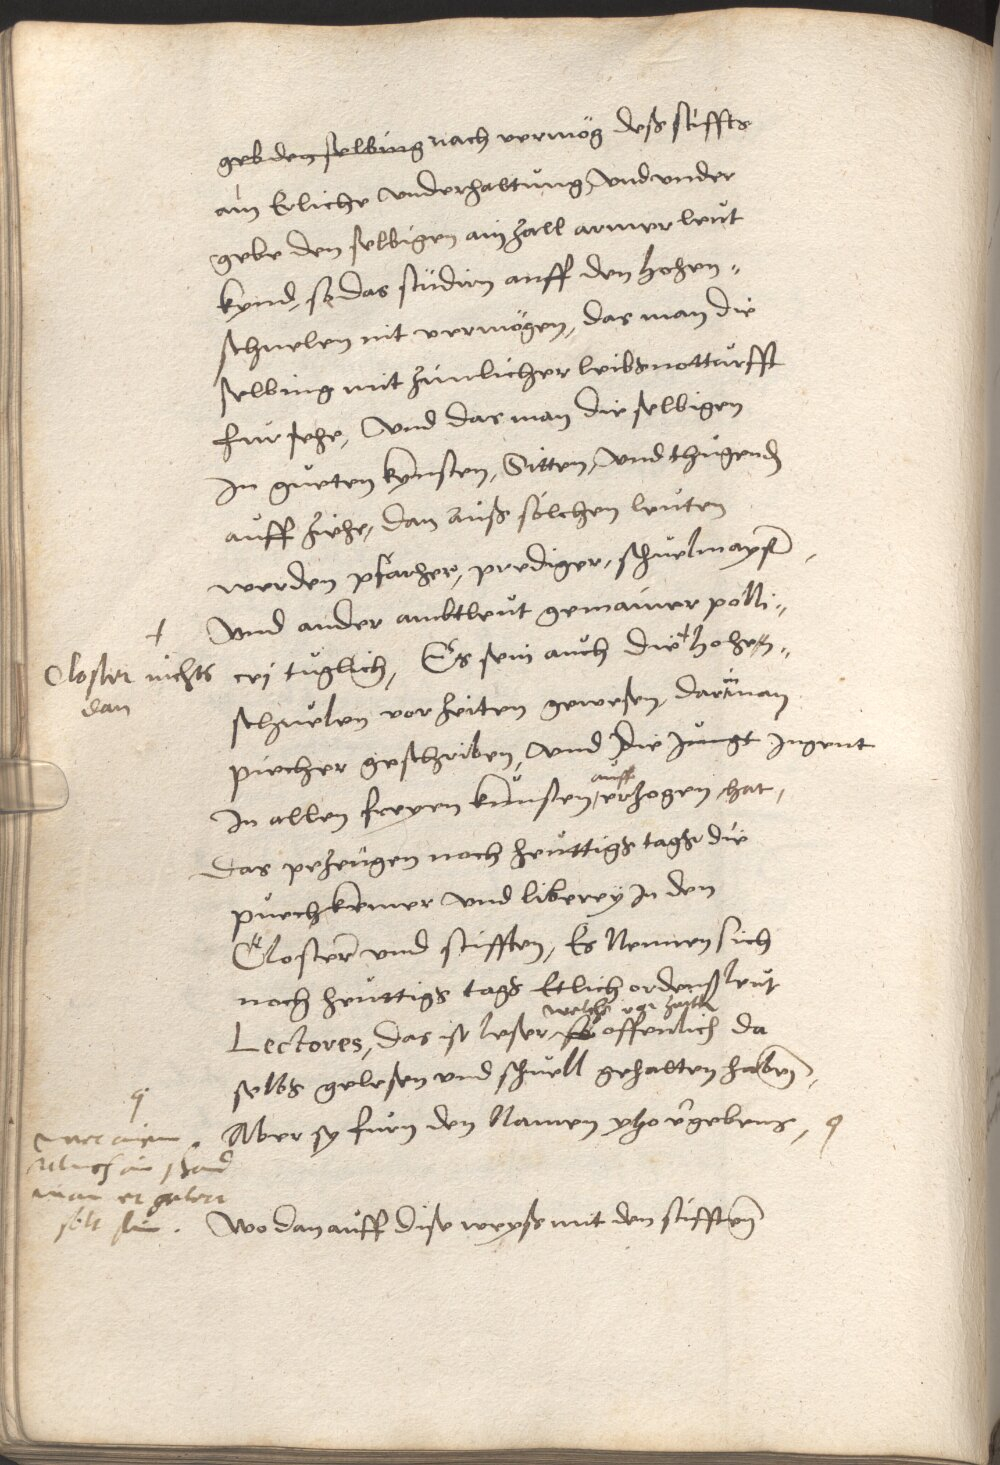 geb den selbing nach vermög deß stiffts
ain Erliche underhaltung, und under
gebe den selbigen ain zall armer leut
kynd, so das studirn auff den hohen„
schuelen nit vermögen, das man die
selbing mit zimlicher leibsnotturfft
fursehe, Und das man die selbigen
In gueten kynsten, Sitten, und thugendt
auff ziehe, dan auß solchen leuten
werden pfarher, prediger, schuelmayst̄,
Und ander ambtleut gemainer polli„
cej tuglich, Es sein auch die † hohen„
schuelen vor zeiten gewesen, darin̄ man
puecher geschriben, und die jungt Jugent
In allen freyen kunsten, auff erzogen hat,
Das pezeugen noch heuttigs tags die
puechkemer und liberey In den
Closterñ und stifften, Es Nennen sich
noch heuttigs tags Etlich ordensleut
Lectores, das ist leser, welche vor zeyten so offenlich da
selbs gelesen und schuell gehalten haben,
Aber sy furn den Namen yho vergebens,
Wo dan auff dise weyse mit den stifften
†
Closter nichts
dan
man er gelert
solt sein.